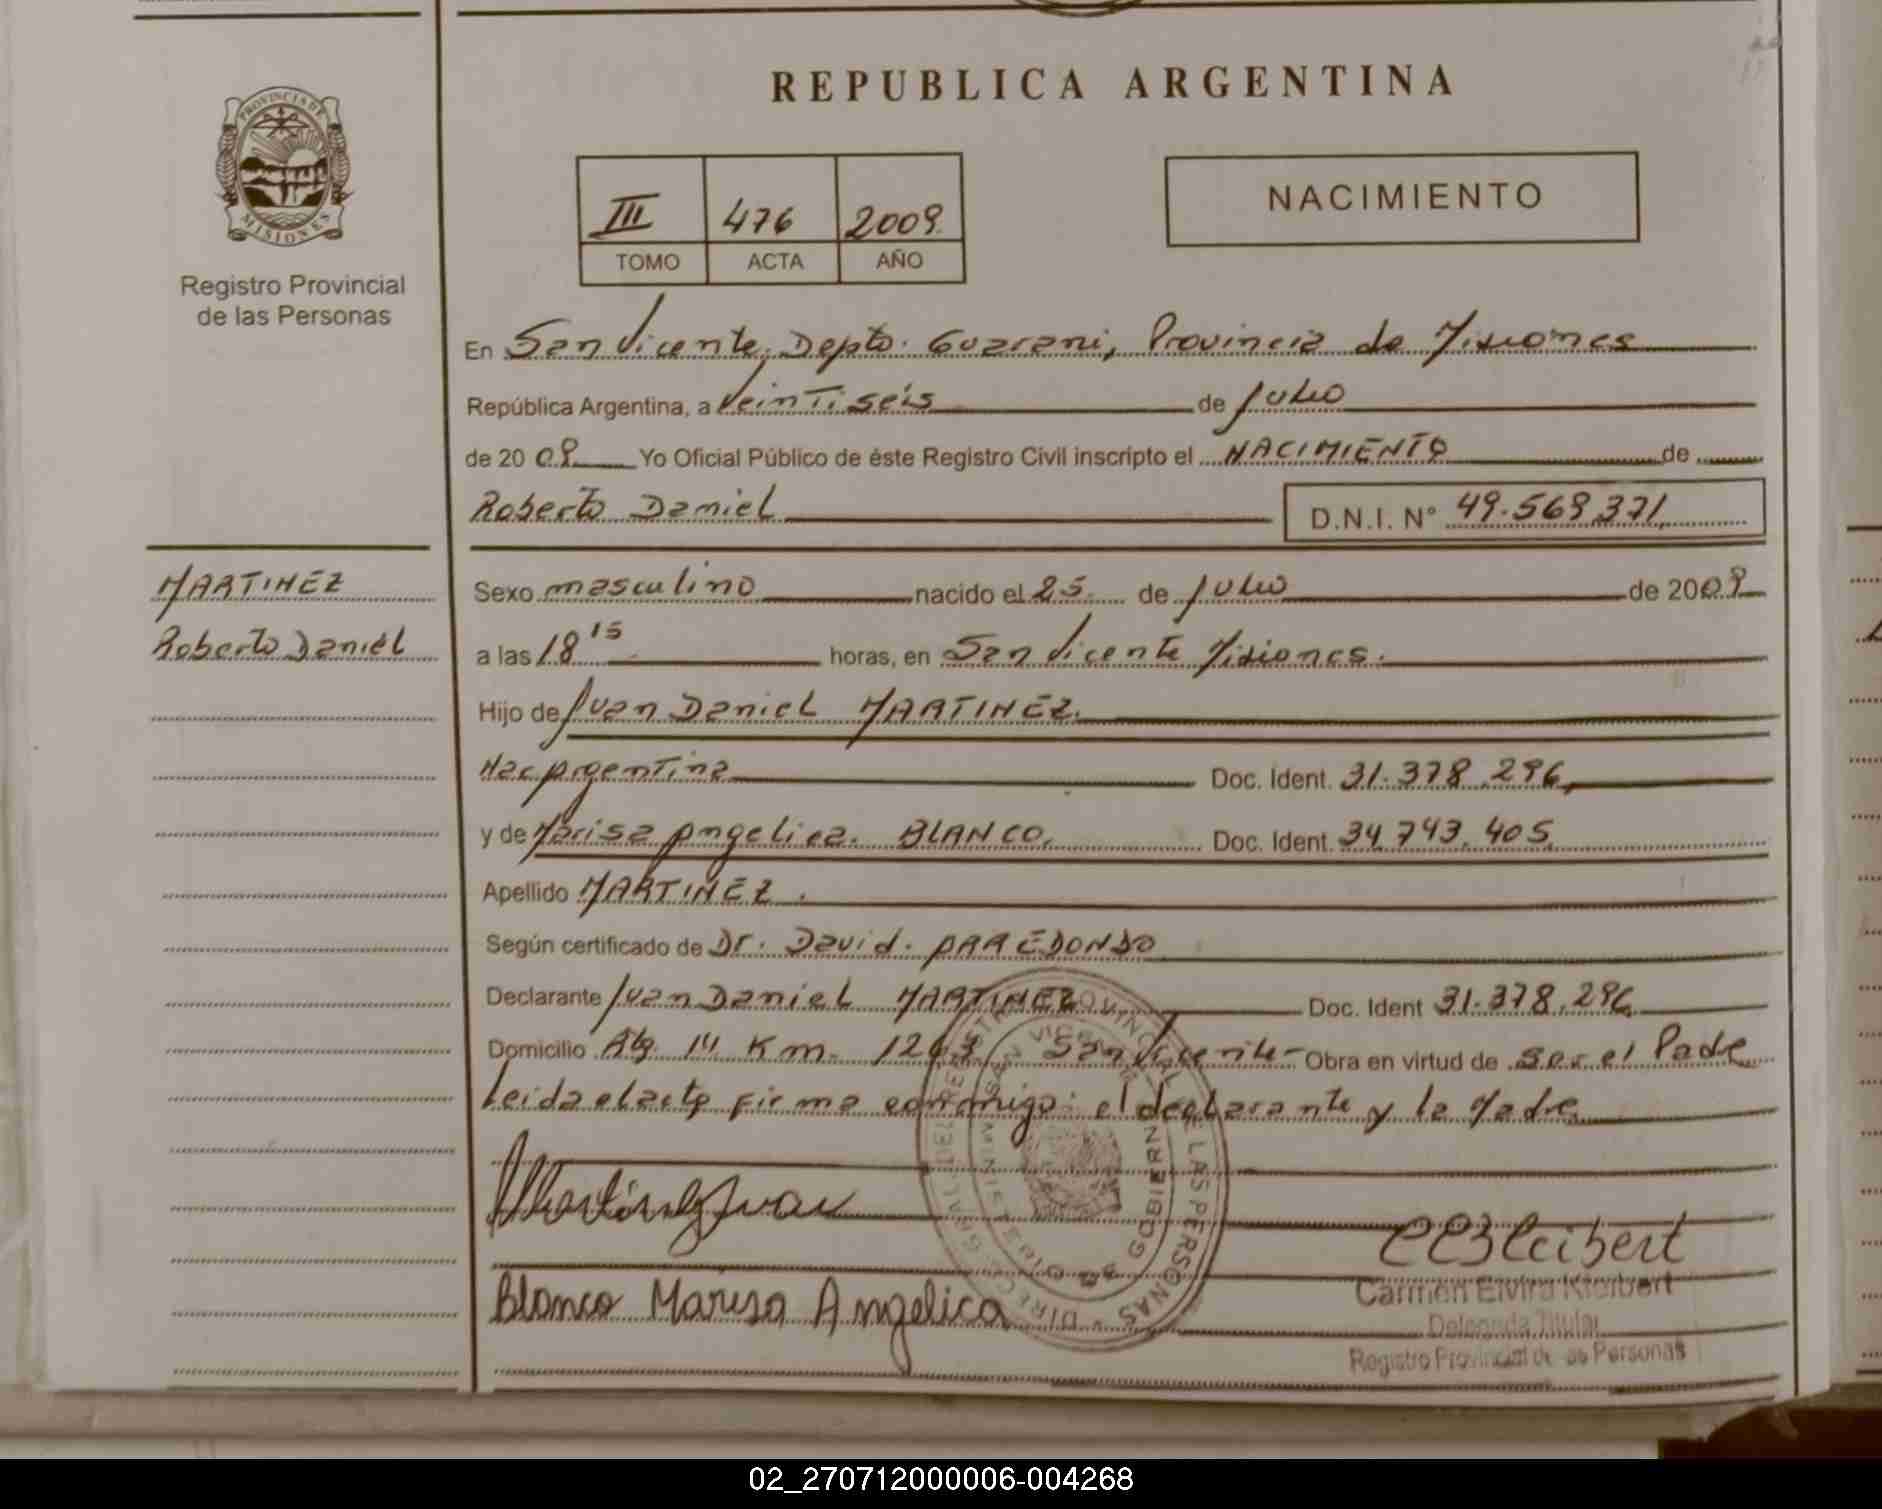 REPUBLICA ARGENTINA
PROVINCIA DE
MISIONES
Registro Provincial
de las Personas
III 476 2009
TOMO ACTA AÑO
NACIMIENTO
En San Vicente, Depto. Guarani, Provincia de Misiones
República Argentina, a Veintiseis de Julio
de 2009 Yo Oficial Público de éste Registro Civil inscripto el NACIMIENTO de
Roberto Daniel D.N.I. N° 49.569.371
MARTINEZ
Roberto Daniel
Sexo masculino nacido el 25 de Julio de 2009
a las 18 15 horas, en San Vicente Misiones.
Hijo de Juan Daniel MARTINEZ.
Nac Argentina Doc. Ident. 31.378.296
y de Marisa Angelica BLANCO. Doc. Ident. 34.743.405
Apellido MARTINEZ.
Según certificado de Dr. David. ARREDONDO
Declarante Juan Daniel MARTINEZ Doc. Ident 31.378.296
Domicilio 14 Km. San Vicente- Obra en virtud de ser el Padre
Leida el acta firma conmigo: el declarante y la Madre
Martinez Juan
Blanco Marisa Angelica
Carmen Elvira Kleibert
Delegada Titular
Registro Provincial de las Personas
02_270712000006-004268